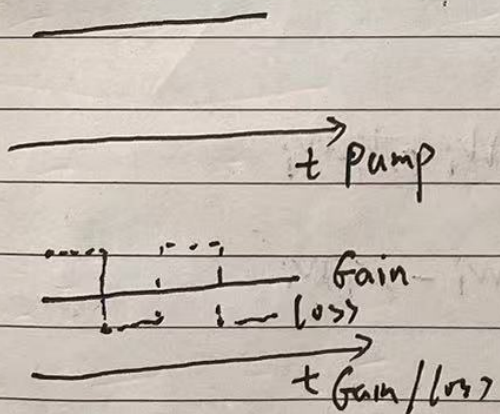 t pump
Gain
loss
t Gain/loss